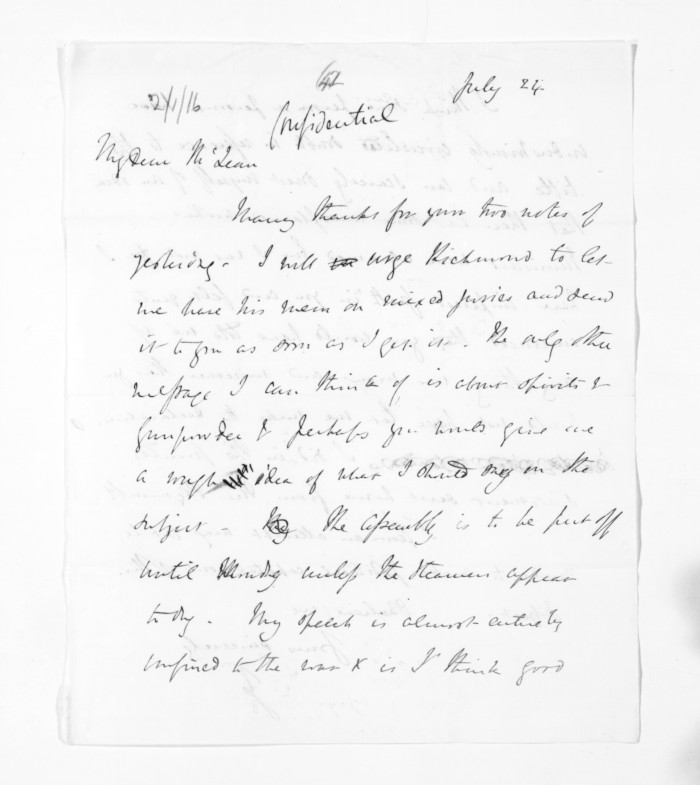 July 24
2/1/16
Confidential
My Dear McLean
Many thanks for your two notes of
yesterday. I will urge Richmond to let
me have his mem on mixed juries and send
it to you as soon as I get it. The only other
message I can think of is about spirits &
Gunpowder & perhaps you would give me
a rough idea of what I should say on the
subject - The Assembly is to be put off
until Monday unless the steamers appear
to day. My speech is almost entirely
confined to the war & is I think good